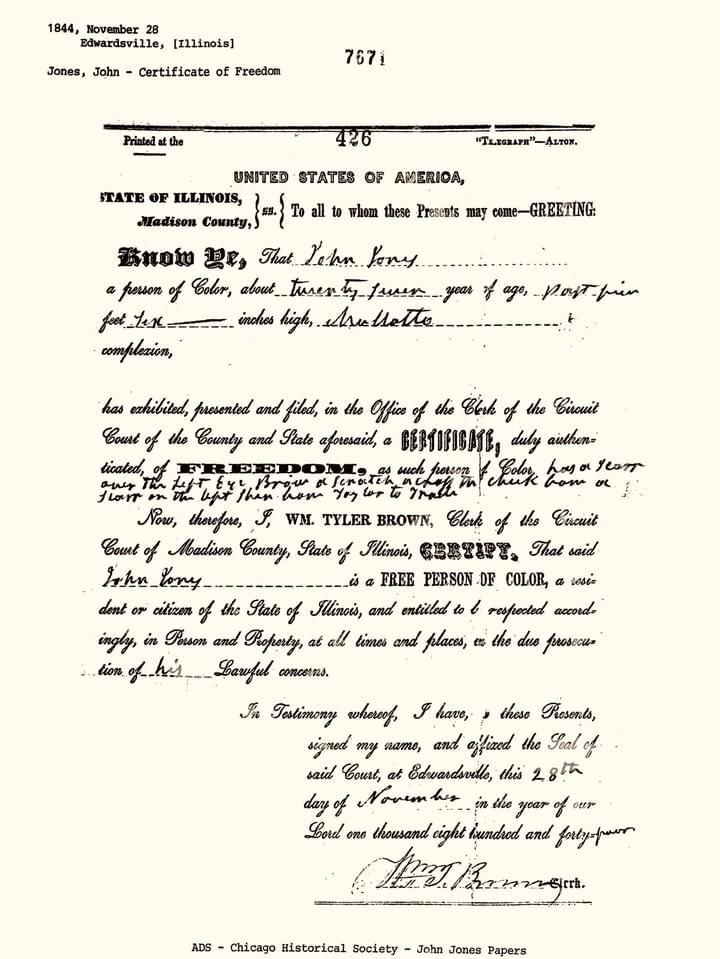 1844, November 28
Edwardsville, [Illinois]
7671
Jones, John - Certificate of Freedom
Printed at the 426 "Telegraph"—Alton.
UNITED STATES OF AMERICA,
STATE OF ILLINOIS,
Madison County, } ss. { To all to whom these Presents may come—GREETING:
Know Ye, That John Jones
a person of Color, about twenty seven year of age,
feet six inches high, Mulatto
complexion,
has exhibited, presented and filed, in the Office of the Clerk of the Circuit
Court of the County and State aforesaid, a CERTIFICATE, duly authen=
ticated, of FREEDOM, as such person of Color, has a scar
over the left Eye Brow a scratch across the cheek bone a
scar on the left shin bone Taylor to
Now, therefore, I, WM. TYLER BROWN, Clerk of the Circuit
Court of Madison County, State of Illinois, CERTIFY, That said
John Jones is a FREE PERSON OF COLOR, a resi=
dent or citizen of the State of Illinois, and entitled to b respected accord=
ingly, in Person and Property, at all times and places, in the due prosecu=
tion of his Lawful concerns.
In Testimony whereof, I have, these Presents,
signed my name, and affixed the Seal of
said Court, at Edwardsville, this 28th
day of November in the year of our
Lord one thousand eight hundred and forty=four
Wm T. Brown Clerk.
ADS - Chicago Historical Society - John Jones Papers